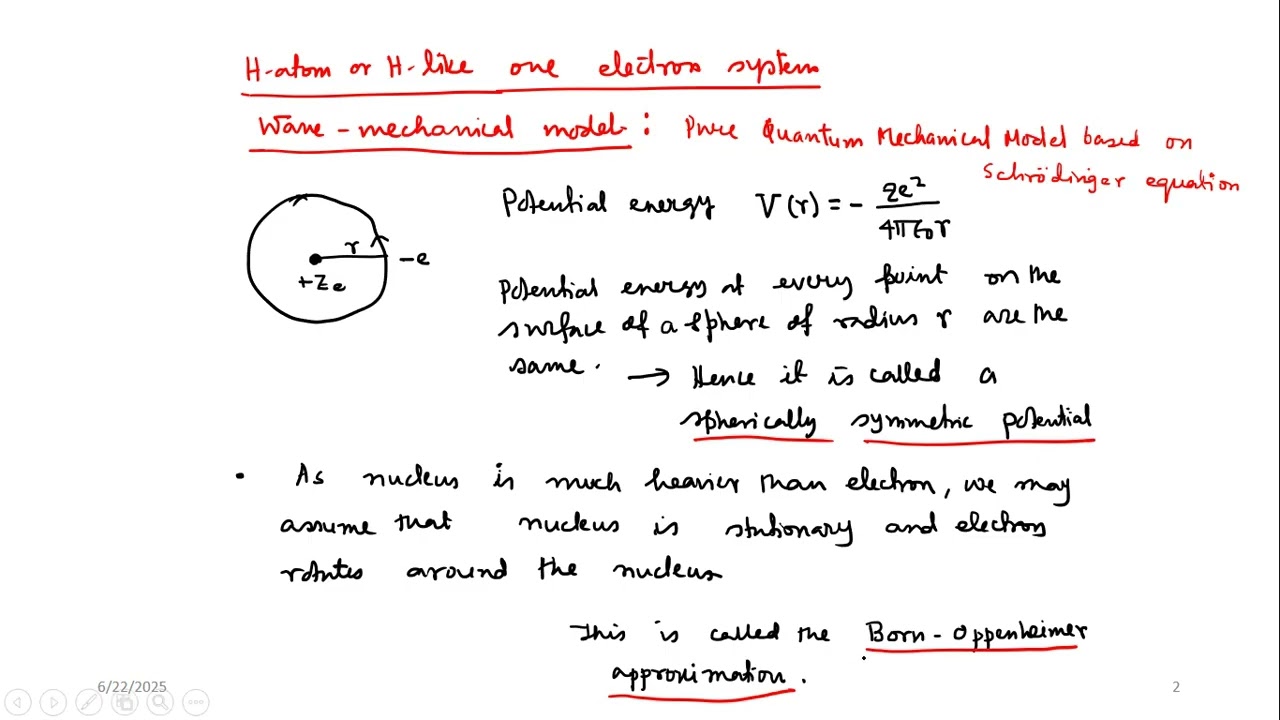 H-atom or H-like one electron system
Wave-mechanical model : Pure Quantum Mechanical Model based on
Schrödinger equation
Potential energy V(r) = - Ze²/4πε₀r
r
-e
+Ze
Potential energy at every point on the
surface of a sphere of radius r are the
same.
→ Hence it is called a
spherically symmetric potential
• As nucleus is much heavier than electron, we may
assume that nucleus is stationary and electron
rotates around the nucleus
This is called the Born-Oppenheimer
approximation.
6/22/2025
2